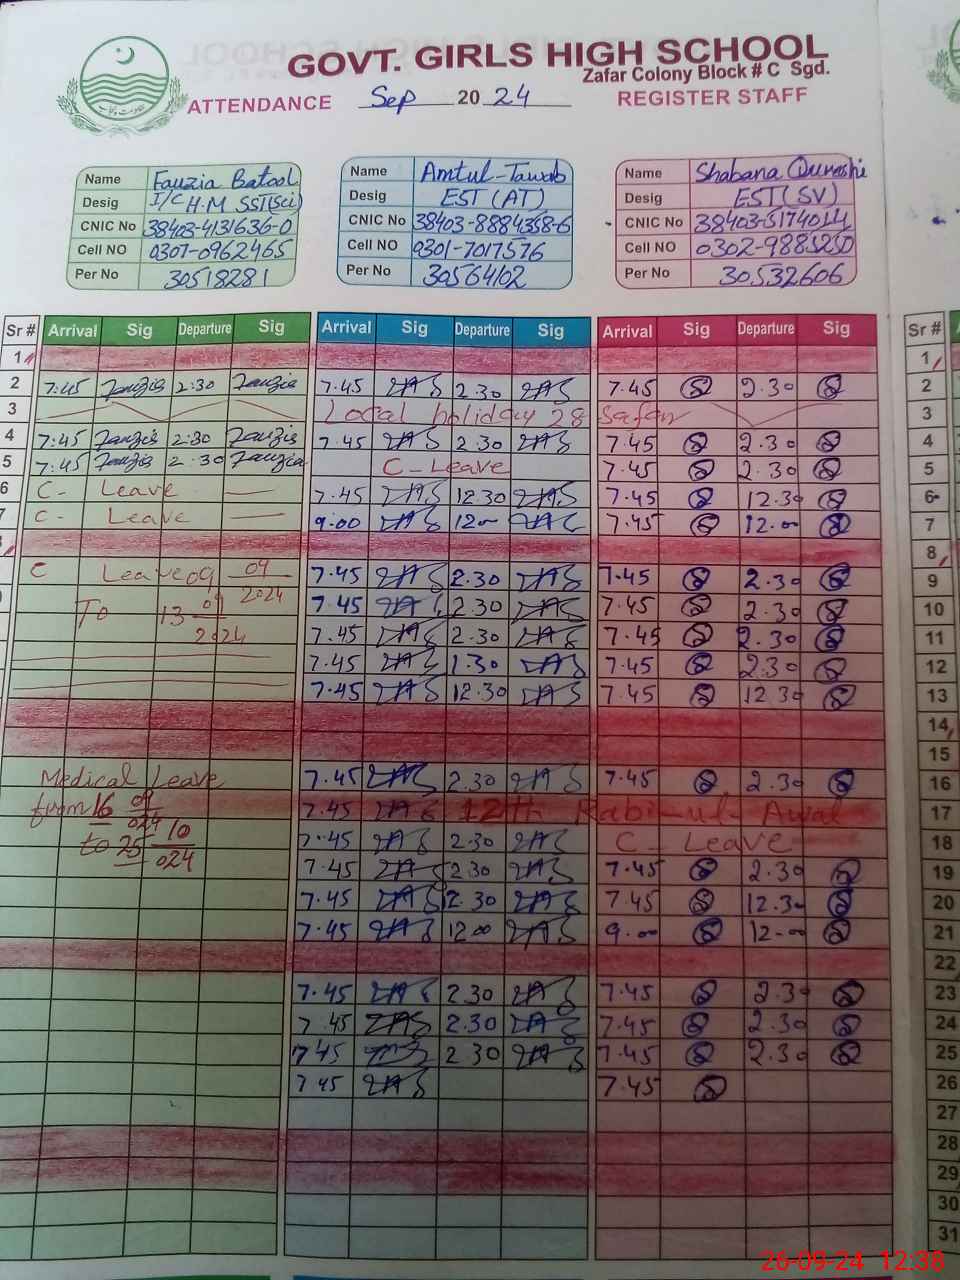 GOVT. GIRLS HIGH SCHOOL
Zafar Colony Block # C Sgd.
ATTENDANCE Sep 20 24 REGISTER STAFF
Name Fauzia Batool
Desig I/C H.M SST(Sci)
CNIC No 38403-4131636-0
Cell NO 0307-0962465
Per No 30518281
Name Amtul-Tawab
Desig EST (AT)
CNIC No 38403-8884358-6
Cell NO 0301-7017576
Per No 30564102
Name Shabana Qureshi
Desig EST(SV)
CNIC No
Cell NO
Per No 30532606
Sr # Arrival Sig Departure Sig Arrival Sig Departure Sig Arrival Sig Departure Sig Sr #
1 1
2 7:45 Fauzia 2:30 Fauzia 7.45 2.30 7.45 2.30 2
3 Local holiday 28 Safar 3
4 7:45 Fauzia 2:30 Fauzia 7.45 2.30 7.45 2.30 4
5 7:45 Fauzia 2:30 Fauzia C-Leave 7.45 2.30 5
6 C- Leave 7.45 12.30 7.45 12.30 6
7 C- Leave 9:00 12.00 7.45 12.00 7
8
C Leave 09 09 2024 7.45 2.30 7.45 2.30 9
To 13 09 2024 7.45 2.30 7.45 2.30 10
7.45 2.30 7.45 2.30 11
7.45 1.30 7.45 2.30 12
7.45 12.30 7.45 12.30 13
14
15
Medical Leave 7.45 2.30 7.45 2.30 16
from 16 09 024 7.45 12th Rabi-ul-Awal 17
to 25 10 024 7.45 2.30 C- Leave 18
7.45 2.30 7.45 2.30 19
7.45 12.30 7.45 12.30 20
7.45 12.00 9.00 12.00 21
22
7.45 2.30 7.45 2.30 23
7.45 2.30 7.45 2.30 24
7.45 2.30 7.45 2.30 25
7.45 7.45 26
27
28
29
30
31
26-09-24 12:38